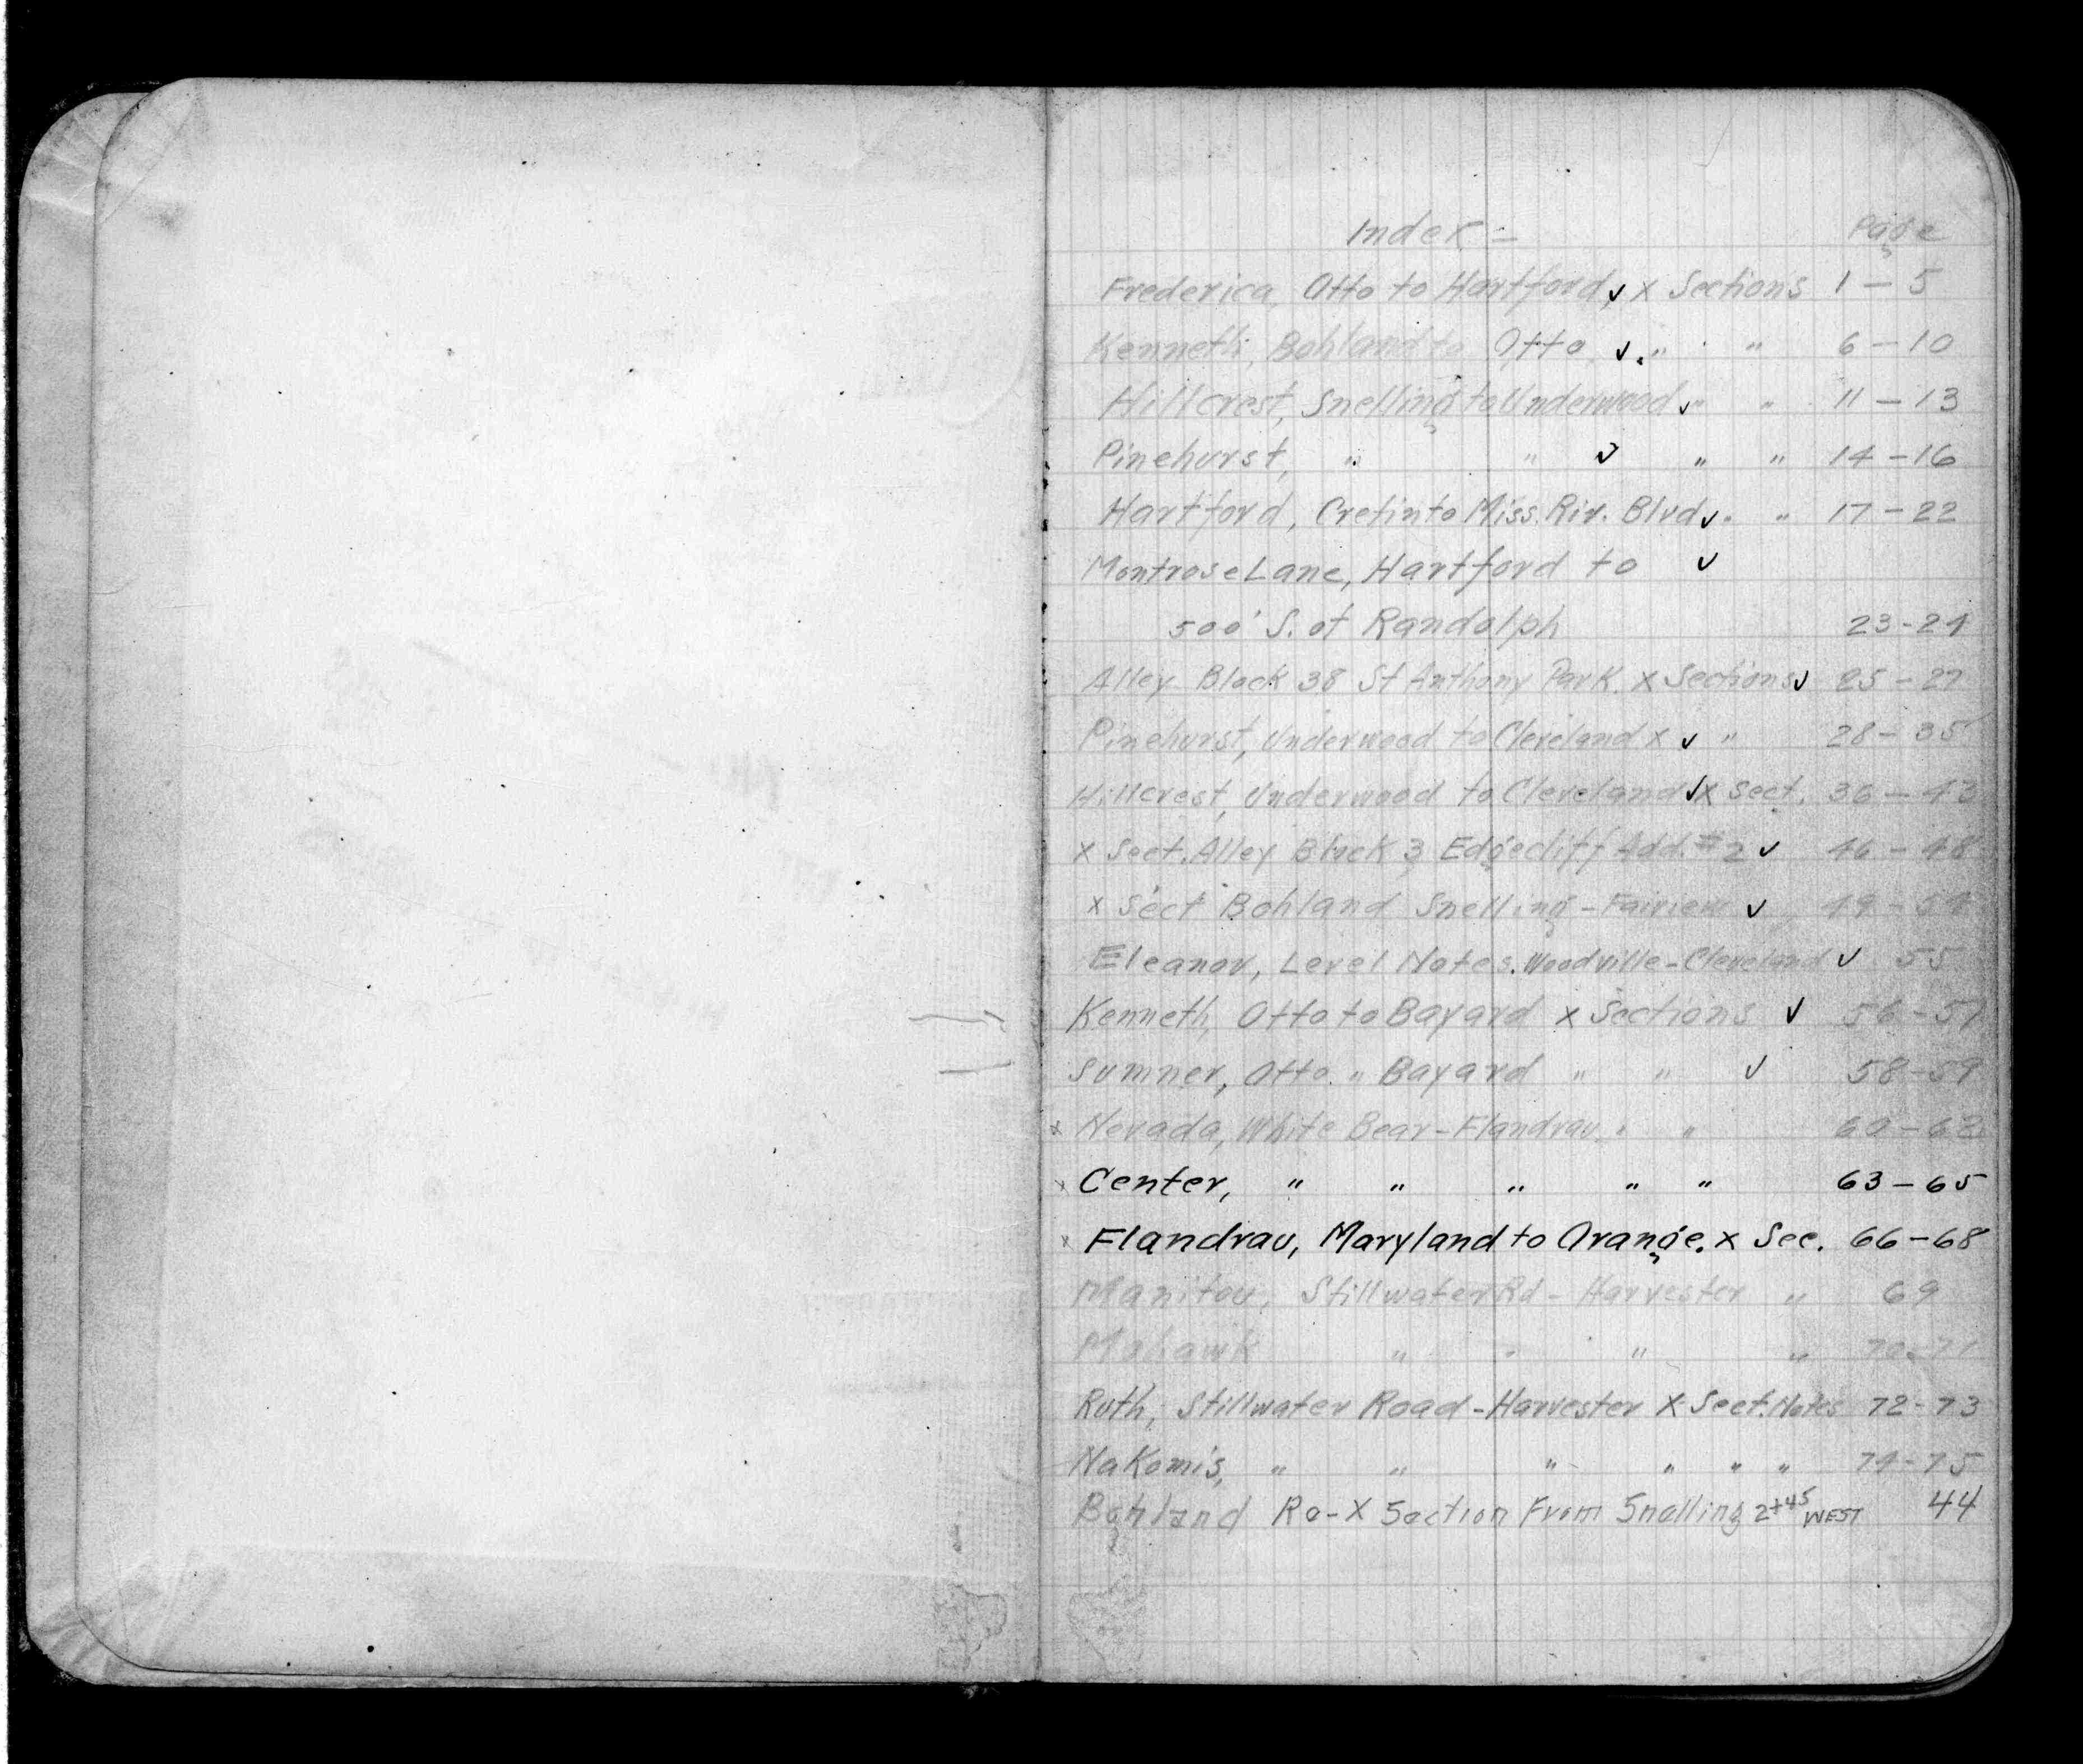 Index - Page
Frederica, Otto to Hartford, ✓ x Sections 1 - 5
Kenneth, Bohland to Otto ✓ " " 6 - 10
Hillcrest, Snelling to Underwood ✓ " " 11 - 13
Pinehurst, " " ✓ " " 14 - 16
Hartford, Cretin to Miss. Riv. Blvd ✓ " " 17 - 22
Montrose Lane, Hartford to ✓
500' S. of Randolph 23 - 24
Alley Block 38 St Anthony Park. x Sections ✓ 25 - 27
Pinehurst, Underwood to Cleveland x ✓ " 28 - 35
Hillcrest, Underwood to Cleveland ✓ x Sect. 36 - 43
x Sect. Alley Block 3 Edgecliff Add. #2 ✓ 46 - 48
x Sect Bohland Snelling - Fairview ✓ 49 - 54
Eleanor, Level Notes. Woodville - Cleveland ✓ 55
Kenneth, Otto to Bayard x Sections ✓ 56 - 57
Sumner, Otto " Bayard " " ✓ 58 - 59
x Nevada, White Bear - Flandrau " " 60 - 62
x Center, " " " " " 63 - 65
x Flandrau, Maryland to Orange. x Sec. 66 - 68
Manitou, Stillwater Rd - Harvester " 69
Mohawk " " " " 70 - 71
Ruth, Stillwater Road - Harvester X-Sect. Notes 72 - 73
Nakomis, " " " " " " 74 - 75
Bohland Re-X Section From Snelling 2+45 WEST 44